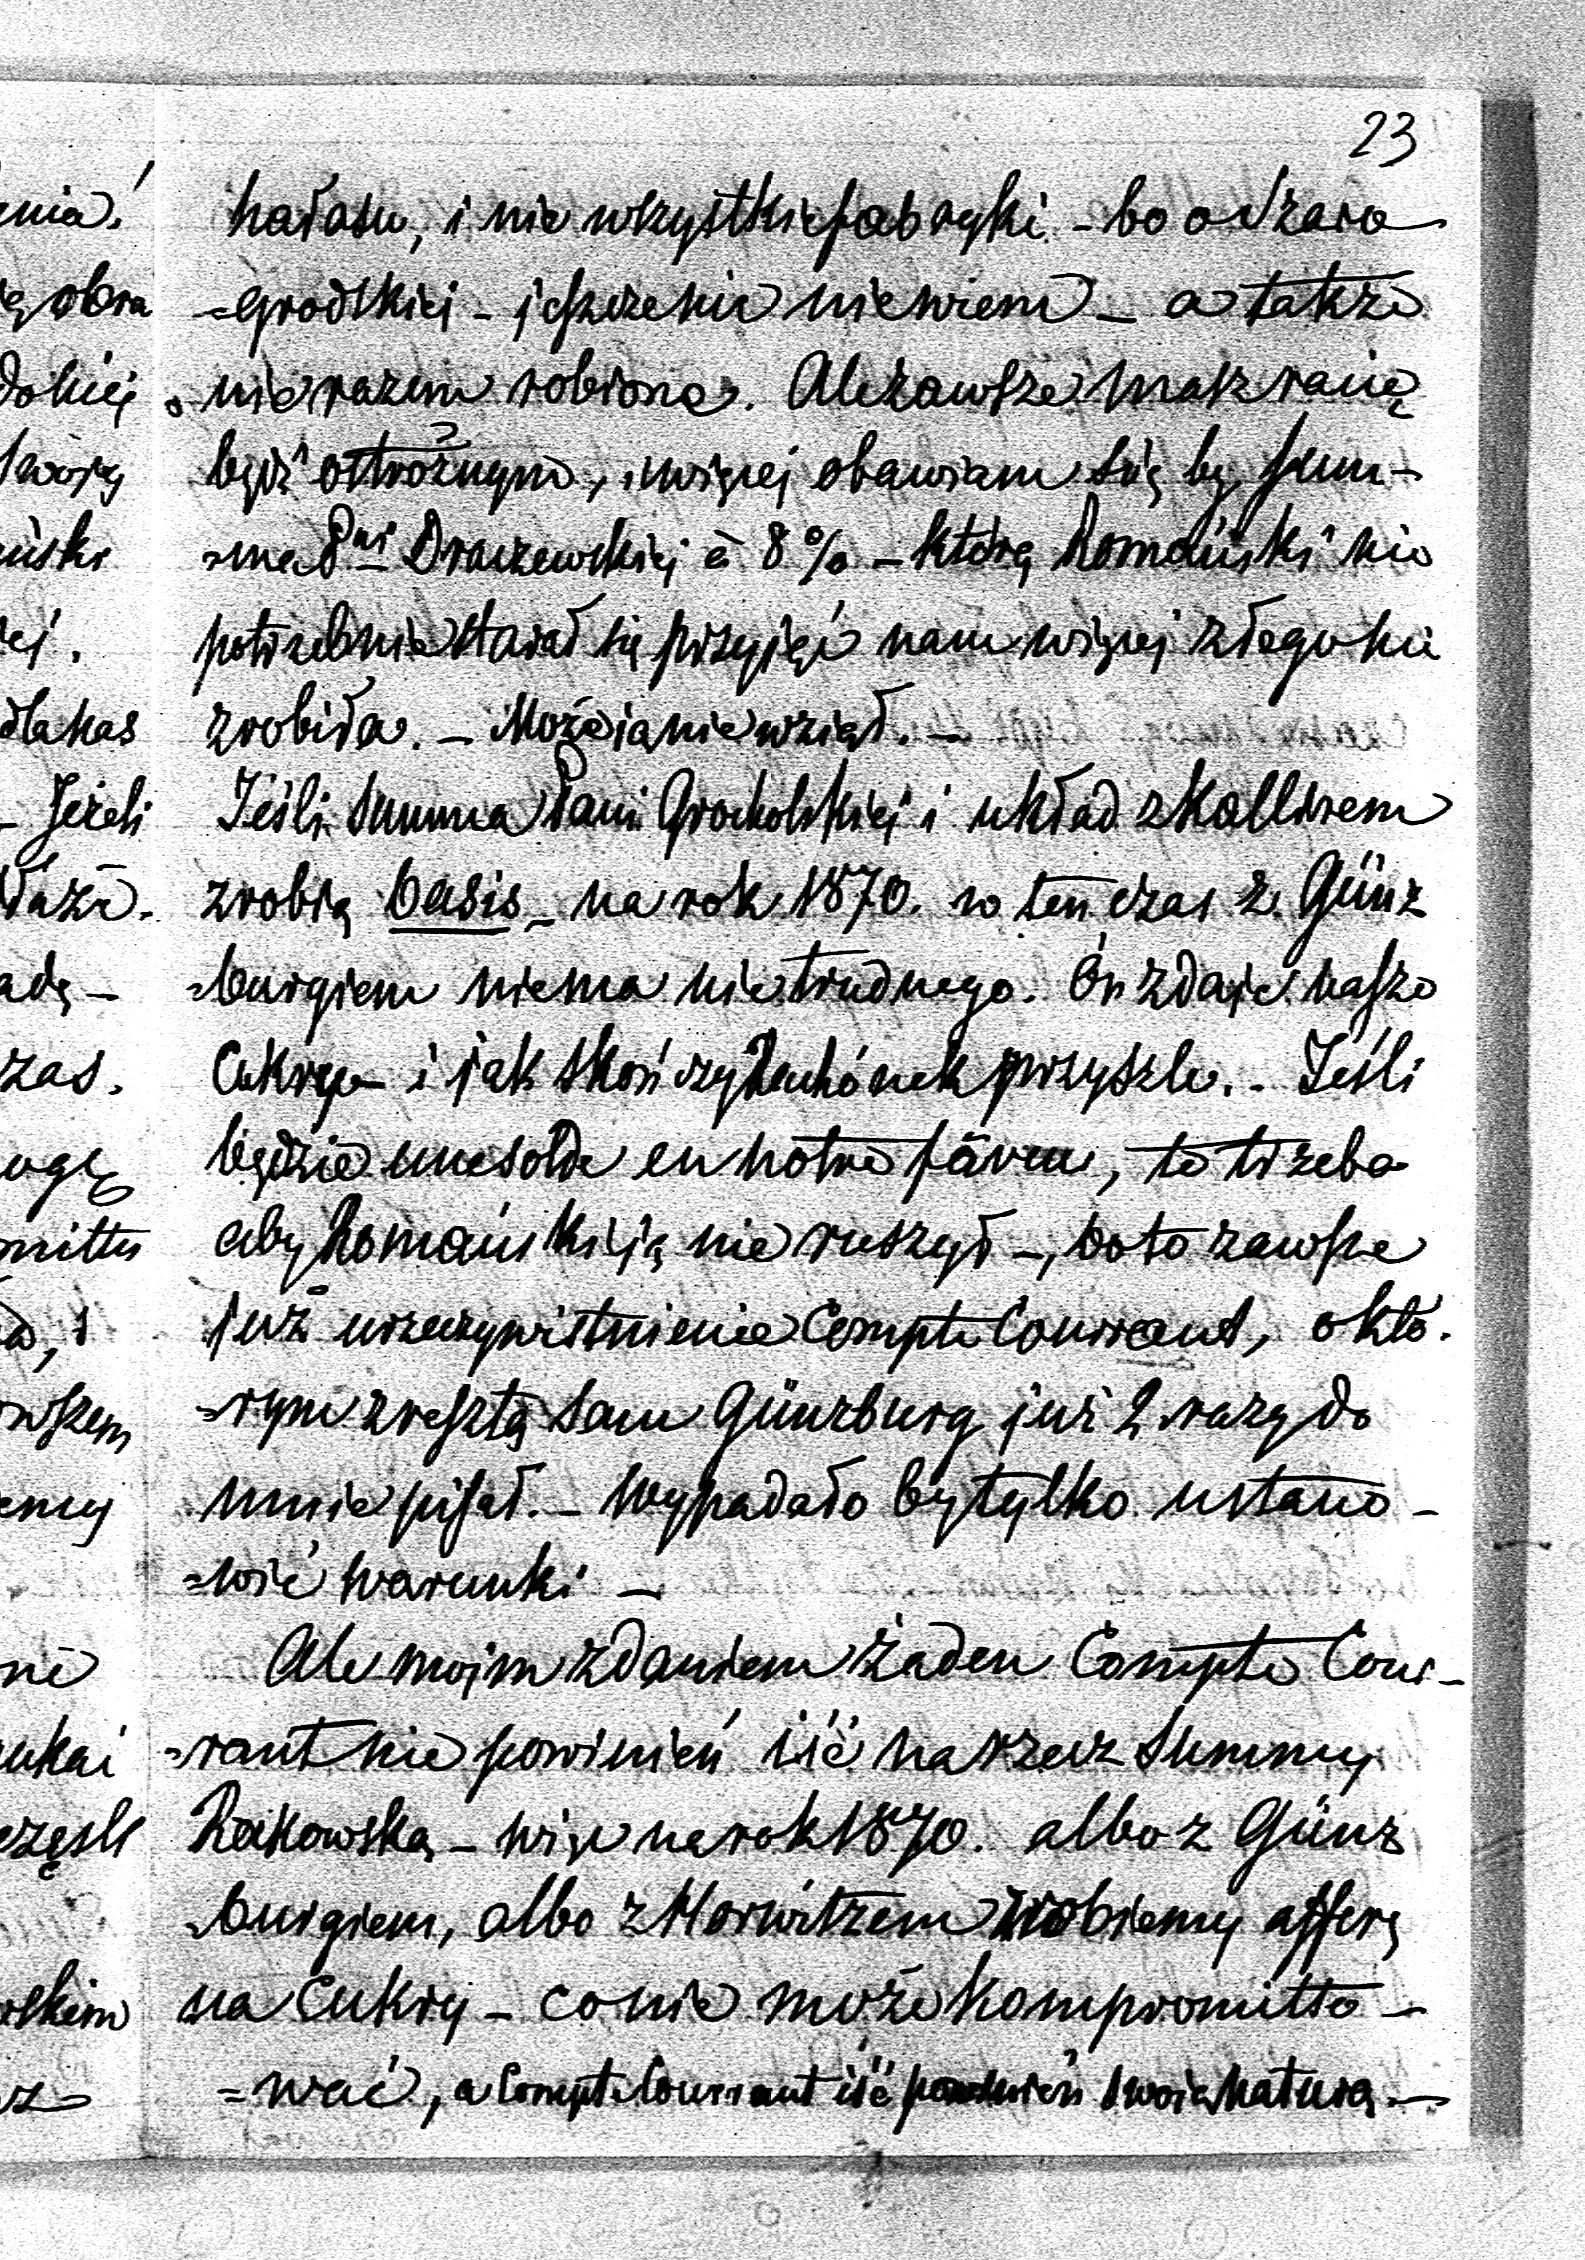 23
hałasu, i nie wszystkie fabryki - bo o Szaro
=grodzkiej - jeszcze nic nie wiem - a także
nie razem robione. Ale zawsze masz racię
bydź ostrożnym, więcej obawiam się by sum-
=ma Pni Draczewskiej à 8% - którą Romański nie
potrzebnie starał się przyjąć nam więcej złego nie
zrobiła. - Może ią nie wziął. -
Jeśli summa Pani Grocholskiej i układ z Kallirem
zrobią basis - na rok 1870. w ten czas z Günz
=burgiem niema nic trudnego. On zdaje nasze
Cukry - i jak skończy rachónek przyszle. - Jeśli
będzie une solde en notre faveur, to trzeba
aby Romański ią nie ruszył -, bo to zawsze
już urzeczywistnienie Compte Courrant, o któ.
=rym zresztą sam Günzburg już 2 razy do
mnie pisał. - Wypadało by tylko ustano-
=wić warunki -
Ale moim zdaniem żaden Compte Cour-
=rant nie powinień iść na rzecz Summy
Rakowską - więc na rok 1870. albo z Günz
burgiem, albo z Horwitzem zrobiemy afferę
na Cukry - co nie może kompromitto-
=wać, a Compte Courrant iść powinień swoią naturą. -